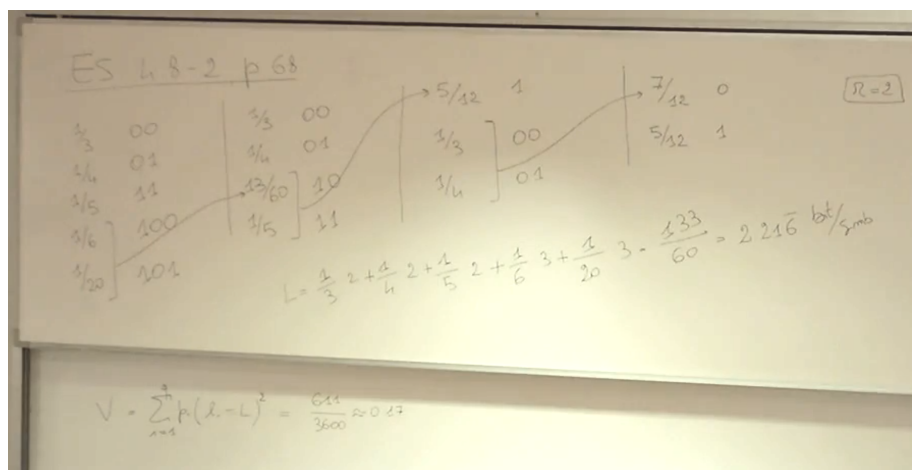 ES 4 8-2 p 68
R=2
1/3 00
1/4 01
1/5 11
1/6 100
1/20 101
1/3 00
1/4 01
13/60 10
1/5 11
5/12 1
1/3 00
1/4 01
7/12 0
5/12 1
L = 1/3 2 + 1/4 2 + 1/5 2 + 1/6 3 + 1/20 3 = 133/60 = 2 216̅ bit/symb
V = Σ p(l - L)² = 611/3600 ≈ 0 17